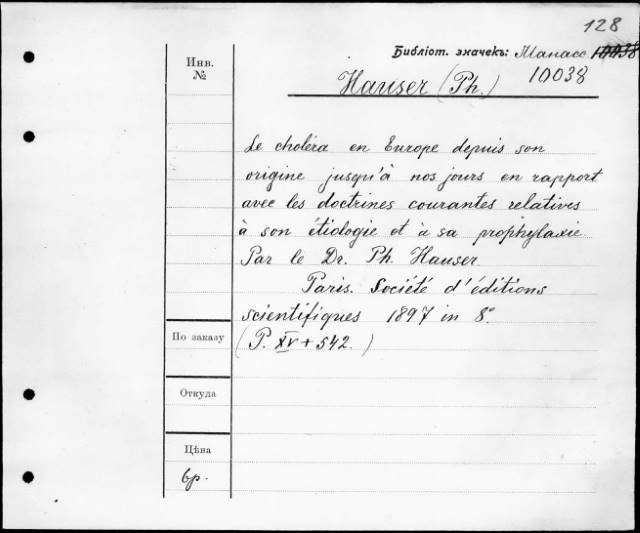 128
Библіот. значекъ: Манасс.
10038
Инв.
№
Hauser (Ph.)
Le choléra en Europe depuis son
origine jusqu'à nos jours en rapport
avec les doctrines courantes relatives
à son étiologie et à sa prophylaxie
Par le Dr. Ph. Hauser
Paris. Société d'éditions
scientifiques 1897 in 8°
(P. XV + 542.)
По заказу
Откуда
Цѣна
6р.